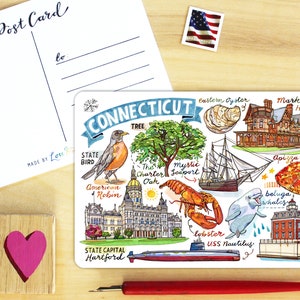 Post Card
to
MADE BY
CONNECTICUT
Eastern Oyster
TREE
STATE
BIRD
The
Charter
Oak
Mystic
Seaport
American
Robin
Apizza
lobster
beluga
whales
STATE CAPITAL
Hartford
USS Nautilus